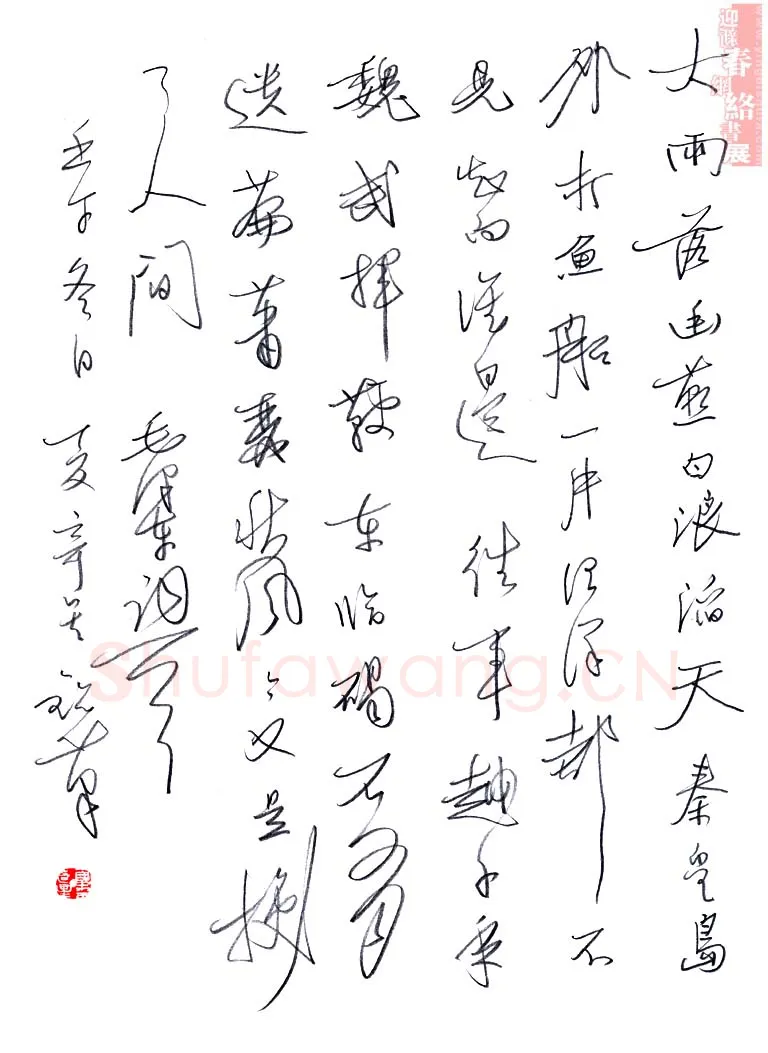 大雨落幽燕白浪滔天秦皇島
外打魚船一片汪洋都不
見知向谁邊 往事越千年
魏武揮鞭东临碣石有
遗篇萧瑟秋风今又是换
了人間 毛泽东词
壬午冬日
春網絡書展
Shufawang.CN